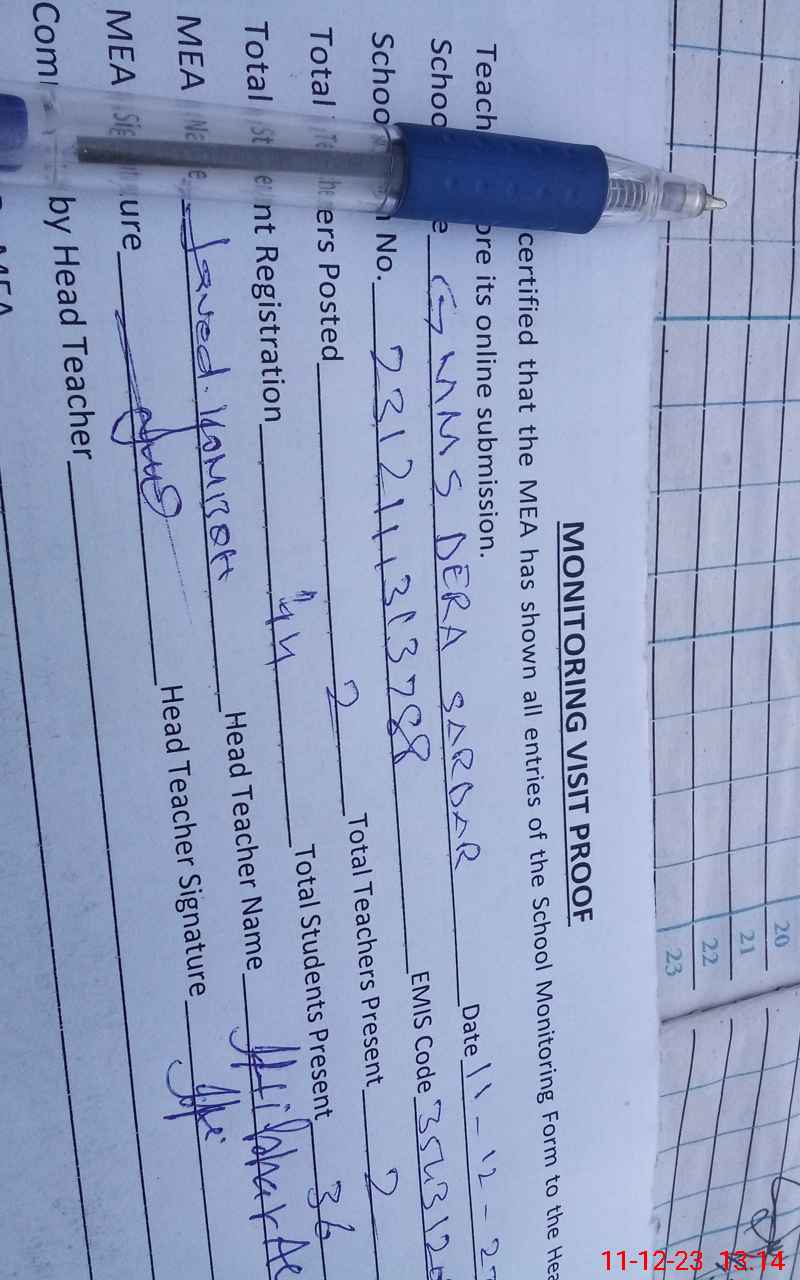 MONITORING VISIT PROOF
certified that the MEA has shown all entries of the School Monitoring Form to the Hea
Teach ore its online submission.
Schoo e GMMS DERA SARDAR Date 11-12-23
Schoo n No. 2312111313788 EMIS Code 3543120
Total Teachers Posted 2 Total Teachers Present 2
Total Student Registration 44 Total Students Present 36
MEA Name Javed Head Teacher Name
MEA Signature Head Teacher Signature
Com by Head Teacher
MEA
20
21
22
23
11-12-23 13:14